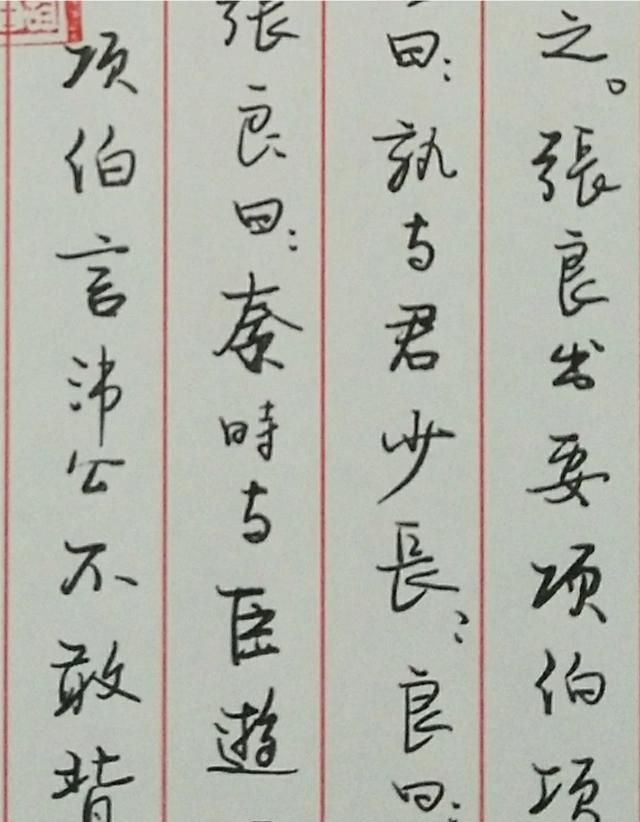 之。張良出要项伯项
曰：孰与君少長：良曰：
張良曰：秦時与臣遊
项伯言沛公不敢背